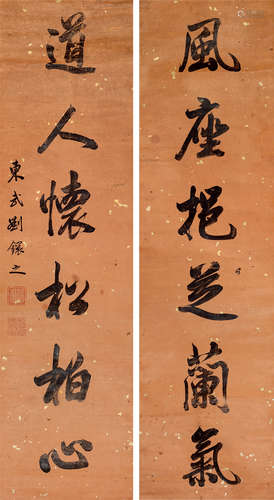 風座挹芝蘭氣
道人懷松柏心
東武劉鐶之